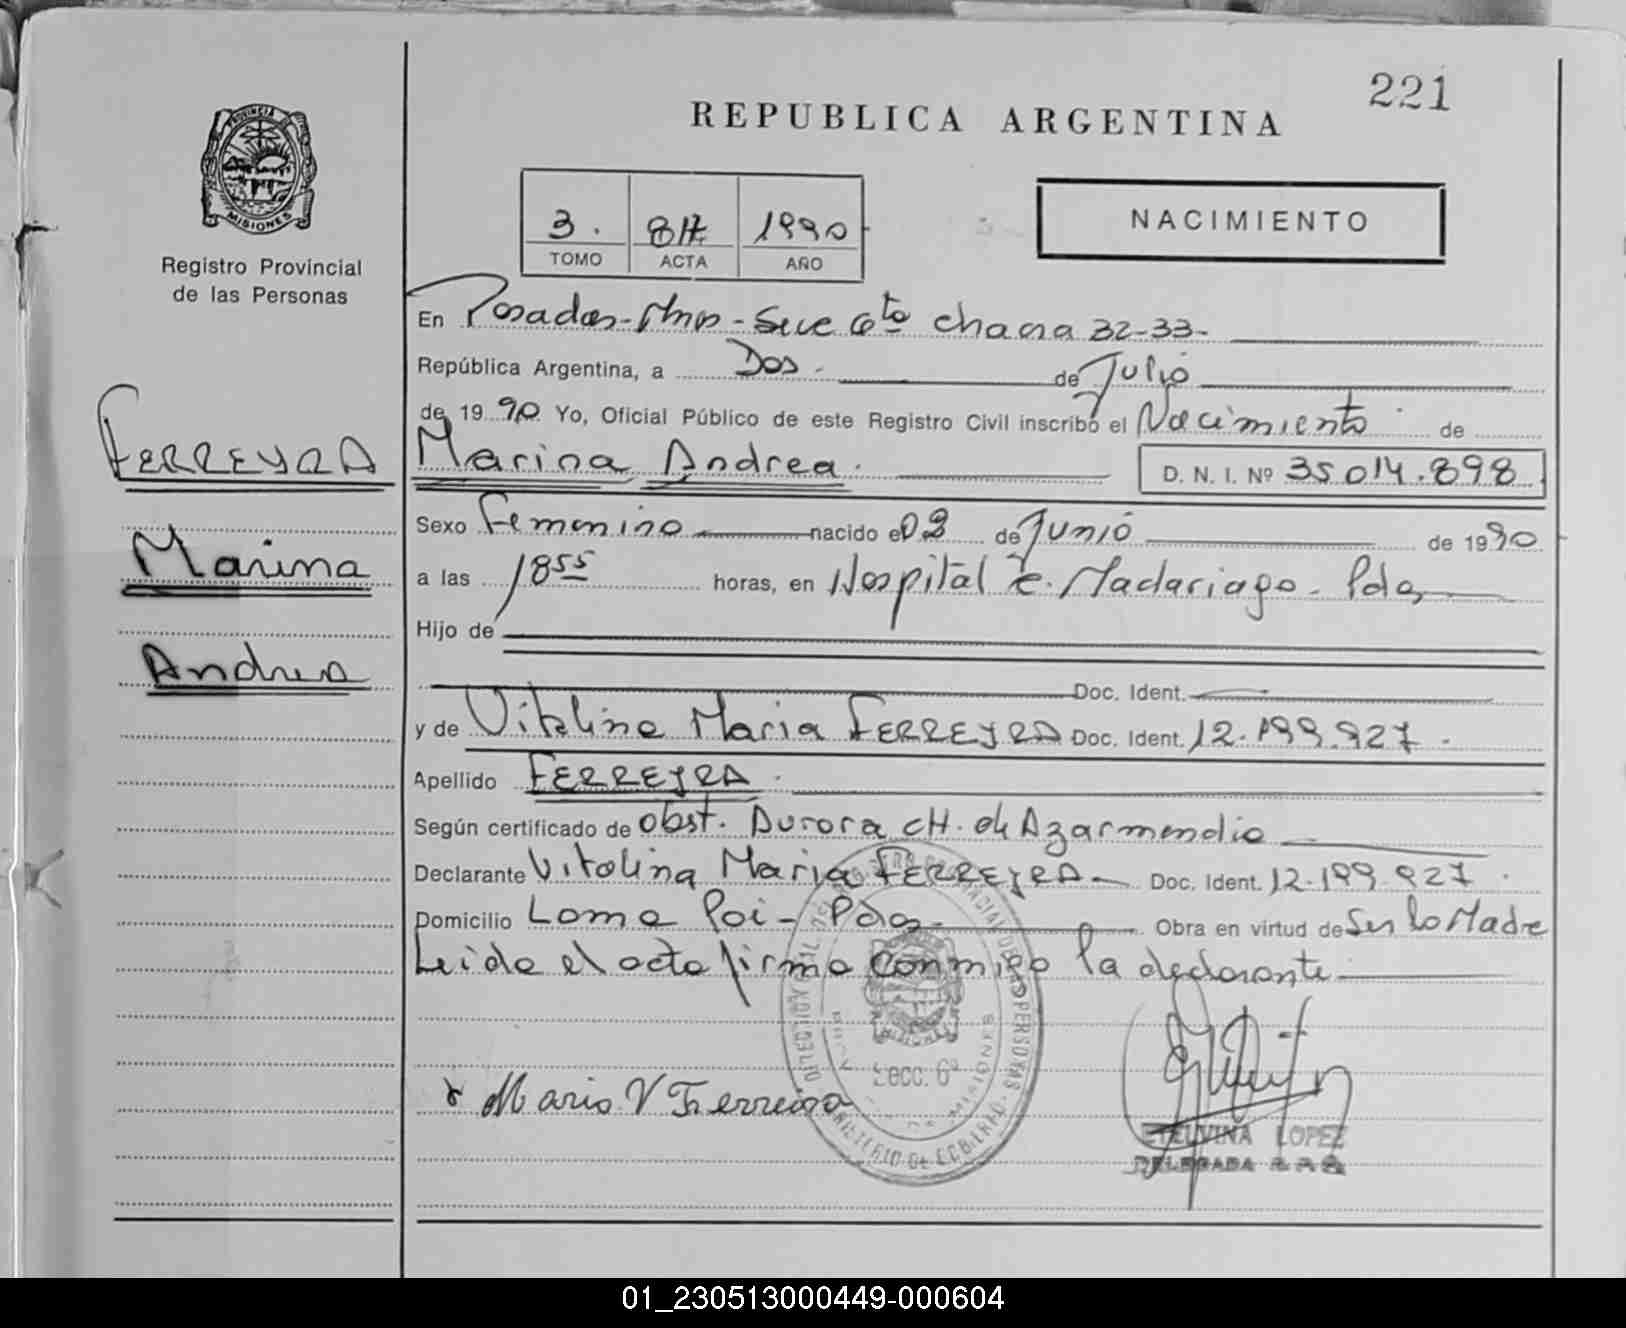 221
REPUBLICA ARGENTINA
PROVINCIA DE
MISIONES
Registro Provincial
de las Personas
3. 817 1990
TOMO ACTA AÑO
NACIMIENTO
En Posadas-Mnes-Secc 6ta chacra 32-33-
República Argentina, a Dos.- de Julio
de 1990 Yo, Oficial Público de este Registro Civil inscribo el Nacimiento de
FERREYRA
Marina Andrea. D. N. I. Nº 35.014.898
Sexo Femenino nacido el 02 de Junio de 1990
Marina
a las 18 55 horas, en Hospital R. Madariaga - Pdas
Hijo de
Andrea
Doc. Ident.
y de Vitalina Maria FERREYRA Doc. Ident. 12.199.927.
Apellido FERREYRA.
Según certificado de Obst. Aurora CH. de Azarmendia
Declarante Vitolina Maria FERREYRA Doc. Ident. 12.199.927.
Domicilio Loma Poi - Pdas. Obra en virtud de Ser la Madre
Leida el acta firma conmigo la declarante
Secc. 6ª
MISIONES
x Maria V Ferreira
ETELVINA LOPEZ
DELEGADA
01_230513000449-000604